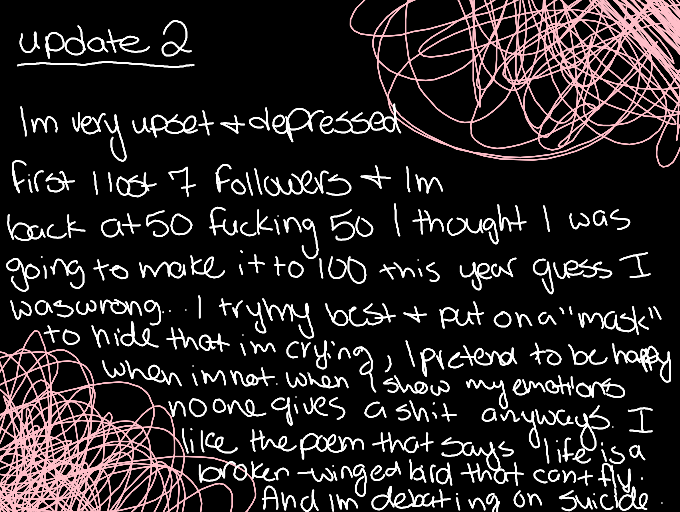 update 2
Im very upset + depressed
first I lost 7 followers + Im
back at 50 fucking 50 I thought I was
going to make it to 100 this year guess I
was wrong... I try my best + put on a "mask"
to hide that im crying, I pretend to be happy
when im not. when I show my emotions
no one gives a shit anyways. I
like the poem that says life is a
broken-winged bird that cant fly.
And im debating on suicide.